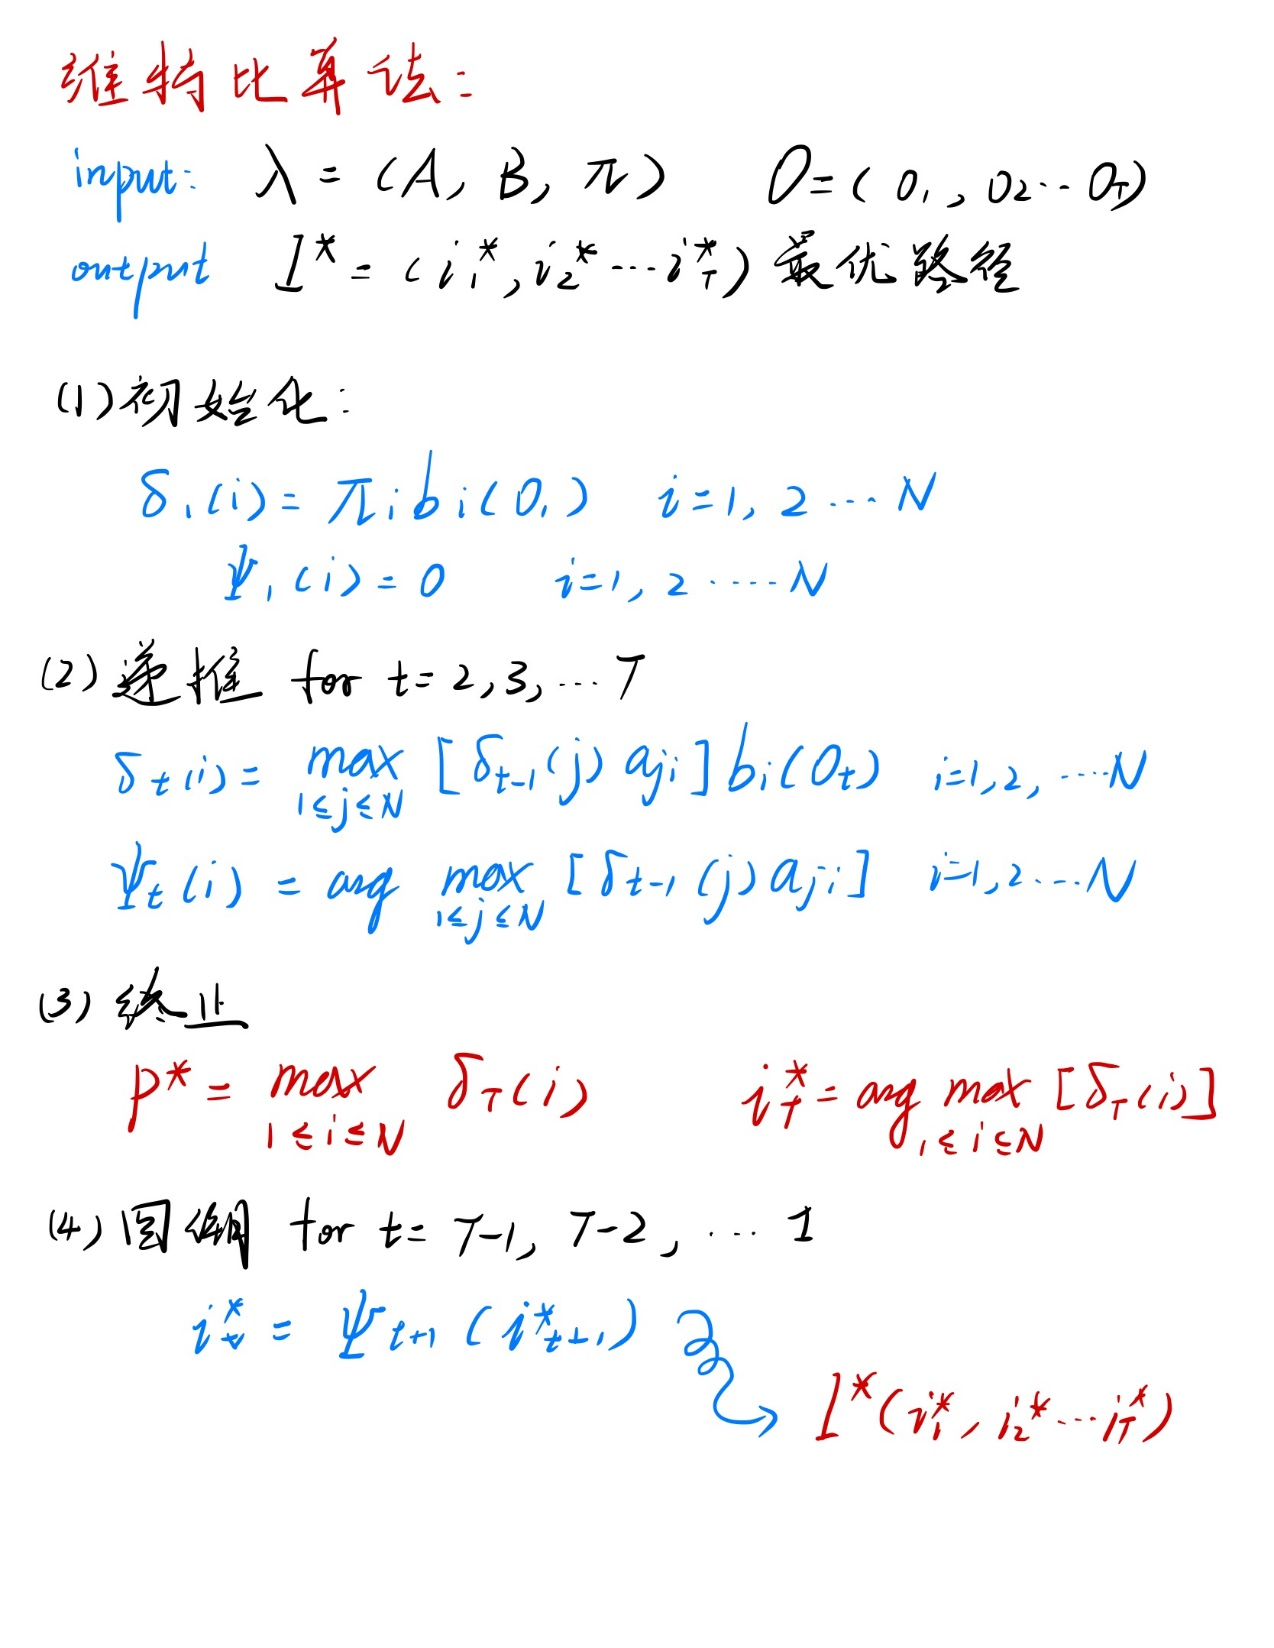 维特比算法:
input: λ = (A, B, π)   O = (o₁, o₂ ⋯ o_T)
output I* = (i₁*, i₂* ⋯ i_T*) 最优路径
(1) 初始化:
δ₁(i) = π_i b_i(o₁)   i = 1, 2 ⋯ N
Ψ₁(i) = 0   i = 1, 2 ⋯ N
(2) 递推 for t = 2, 3, ⋯ T
δ_t(i) = max_{1≤j≤N} [δ_{t-1}(j) a_{ji}] b_i(o_t)   i = 1, 2, ⋯ N
Ψ_t(i) = arg max_{1≤j≤N} [δ_{t-1}(j) a_{ji}]   i = 1, 2 ⋯ N
(3) 终止
P* = max_{1≤i≤N} δ_T(i)   i_T* = arg max_{1≤i≤N} [δ_T(i)]
(4) 回溯 for t = T-1, T-2, ⋯ 1
i_t* = Ψ_{t+1}(i*_{t+1})
I*(i₁*, i₂* ⋯ i_T*)